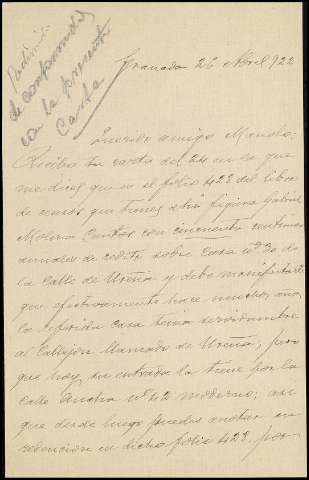 Redimido
de conformidad
con la presente
Carta
Granada 26 Abril 922
Querido amigo Manolo:
Recibo tu carta del 24 en la que
me dices que en el folio 428 del libro
de censos que tienes ahí figura Gabriel
Molina Cantos con cincuenta céntimos
anuales de crédito sobre Casa nº 30 de
la Calle de Ureña y debo manifestarte
que efectivamente hace muchos años
la referida casa tenía servidumbre
al Callejón llamado de Ureña; pero
que hoy su entrada la tiene por la
Calle Ancha nº 42 moderno; así
que desde luego puedes anotar su
redención en dicho folio 428, por-